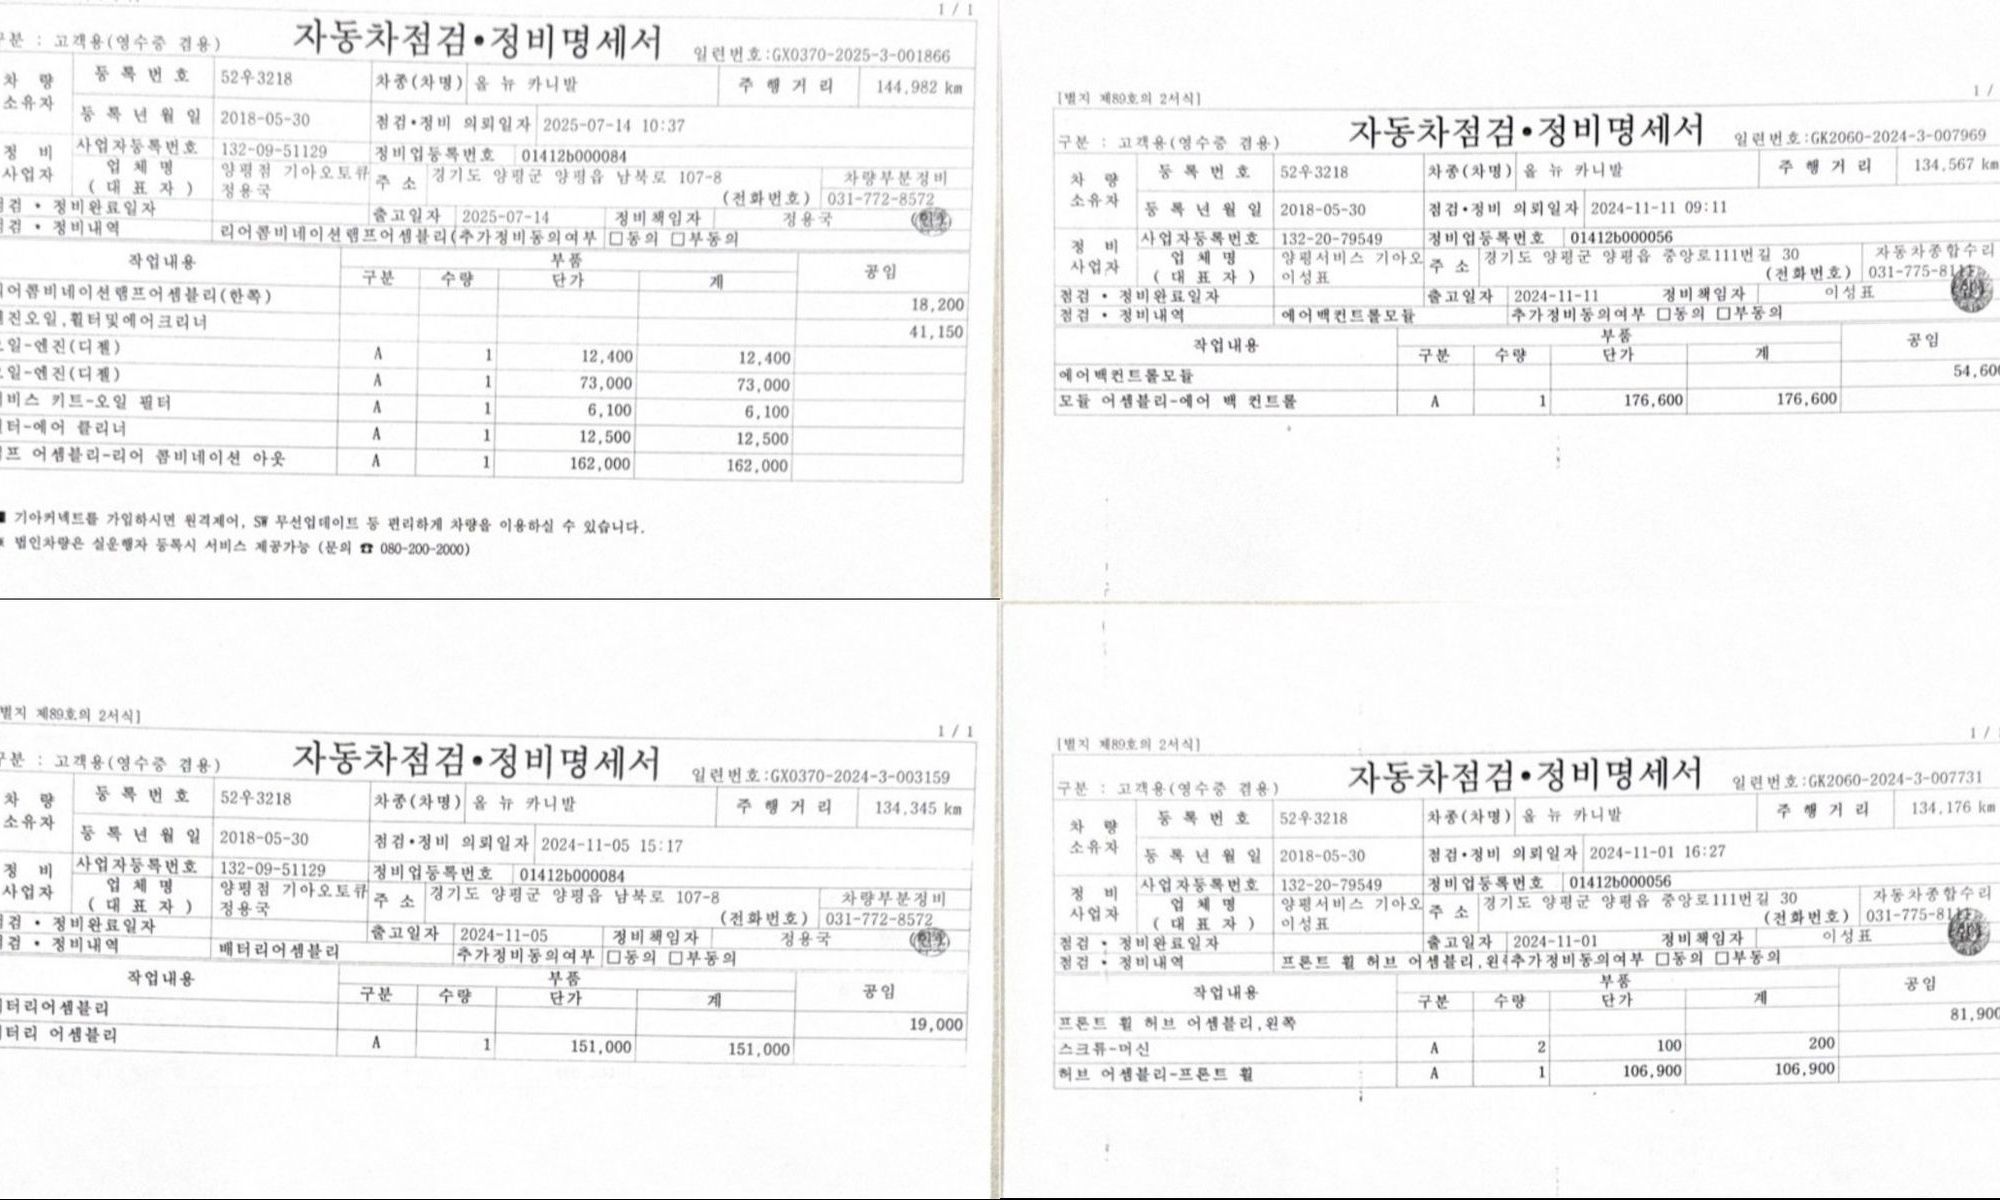 1 / 1
구분 : 고객용(영수증 겸용)
자동차점검•정비명세서
일련번호:GX0370-2025-3-001866
차 량
소유자
등 록 번 호 52우3218 차종(차명) 올 뉴 카니발 주 행 거 리 144,982 km
등 록 년 월 일 2018-05-30 점검•정비 의뢰일자 2025-07-14 10:37
정 비
사업자
사업자등록번호 132-09-51129 정비업등록번호 01412b000084
업 체 명 양평점 기아오토큐 주 소 경기도 양평군 양평읍 남북로 107-8 차량부분정비
( 대 표 자 ) 정용국 (전화번호) 031-772-8572
점검 • 정비완료일자 출고일자 2025-07-14 정비책임자 정용국
점검 • 정비내역 리어콤비네이션램프어셈블리( 추가정비동의여부 □동의 □부동의
작업내용 부품 공임
구분 수량 단가 계
리어콤비네이션램프어셈블리(한쪽) 18,200
엔진오일,휠터및에어크리너 41,150
오일-엔진(디젤) A 1 12,400 12,400
오일-엔진(디젤) A 1 73,000 73,000
서비스 키트-오일 필터 A 1 6,100 6,100
필터-에어 클리너 A 1 12,500 12,500
램프 어셈블리-리어 콤비네이션 아웃 A 1 162,000 162,000
■ 기아커넥트를 가입하시면 원격제어, SW 무선업데이트 등 편리하게 차량을 이용하실 수 있습니다.
* 법인차량은 실운행자 등록시 서비스 제공가능 (문의 ☎ 080-200-2000)
[별지 제89호의 2서식]
1 /
구분 : 고객용(영수증 겸용)
자동차점검•정비명세서
일련번호:GK2060-2024-3-007969
차 량
소유자
등 록 번 호 52우3218 차종(차명) 올 뉴 카니발 주 행 거 리 134,567 km
등 록 년 월 일 2018-05-30 점검•정비 의뢰일자 2024-11-11 09:11
정 비
사업자
사업자등록번호 132-20-79549 정비업등록번호 01412b000056
업 체 명 양평서비스 기아오 주 소 경기도 양평군 양평읍 중앙로111번길 30 자동차종합수리
( 대 표 자 ) 이성표 (전화번호) 031-775-81
점검 • 정비완료일자 출고일자 2024-11-11 정비책임자 이성표
점검 • 정비내역 에어백컨트롤모듈 추가정비동의여부 □동의 □부동의
작업내용 부품 공임
구분 수량 단가 계
에어백컨트롤모듈 54,600
모듈 어셈블리-에어 백 컨트롤 A 1 176,600 176,600
[별지 제89호의 2서식]
1 / 1
구분 : 고객용(영수증 겸용)
자동차점검•정비명세서
일련번호:GX0370-2024-3-003159
차 량
소유자
등 록 번 호 52우3218 차종(차명) 올 뉴 카니발 주 행 거 리 134,345 km
등 록 년 월 일 2018-05-30 점검•정비 의뢰일자 2024-11-05 15:17
정 비
사업자
사업자등록번호 132-09-51129 정비업등록번호 01412b000084
업 체 명 양평점 기아오토큐 주 소 경기도 양평군 양평읍 남북로 107-8 차량부분정비
( 대 표 자 ) 정용국 (전화번호) 031-772-8572
점검 • 정비완료일자 출고일자 2024-11-05 정비책임자 정용국
점검 • 정비내역 배터리어셈블리 추가정비동의여부 □동의 □부동의
작업내용 부품 공임
구분 수량 단가 계
배터리어셈블리 19,000
배터리 어셈블리 A 1 151,000 151,000
[별지 제89호의 2서식]
1 /
구분 : 고객용(영수증 겸용)
자동차점검•정비명세서
일련번호:GK2060-2024-3-007731
차 량
소유자
등 록 번 호 52우3218 차종(차명) 올 뉴 카니발 주 행 거 리 134,176 km
등 록 년 월 일 2018-05-30 점검•정비 의뢰일자 2024-11-01 16:27
정 비
사업자
사업자등록번호 132-20-79549 정비업등록번호 01412b000056
업 체 명 양평서비스 기아오 주 소 경기도 양평군 양평읍 중앙로111번길 30 자동차종합수리
( 대 표 자 ) 이성표 (전화번호) 031-775-81
점검 • 정비완료일자 출고일자 2024-11-01 정비책임자 이성표
점검 • 정비내역 프론트 휠 허브 어셈블리,왼 추가정비동의여부 □동의 □부동의
작업내용 부품 공임
구분 수량 단가 계
프론트 휠 허브 어셈블리,왼쪽 81,900
스크류-머신 A 2 100 200
허브 어셈블리-프론트 휠 A 1 106,900 106,900